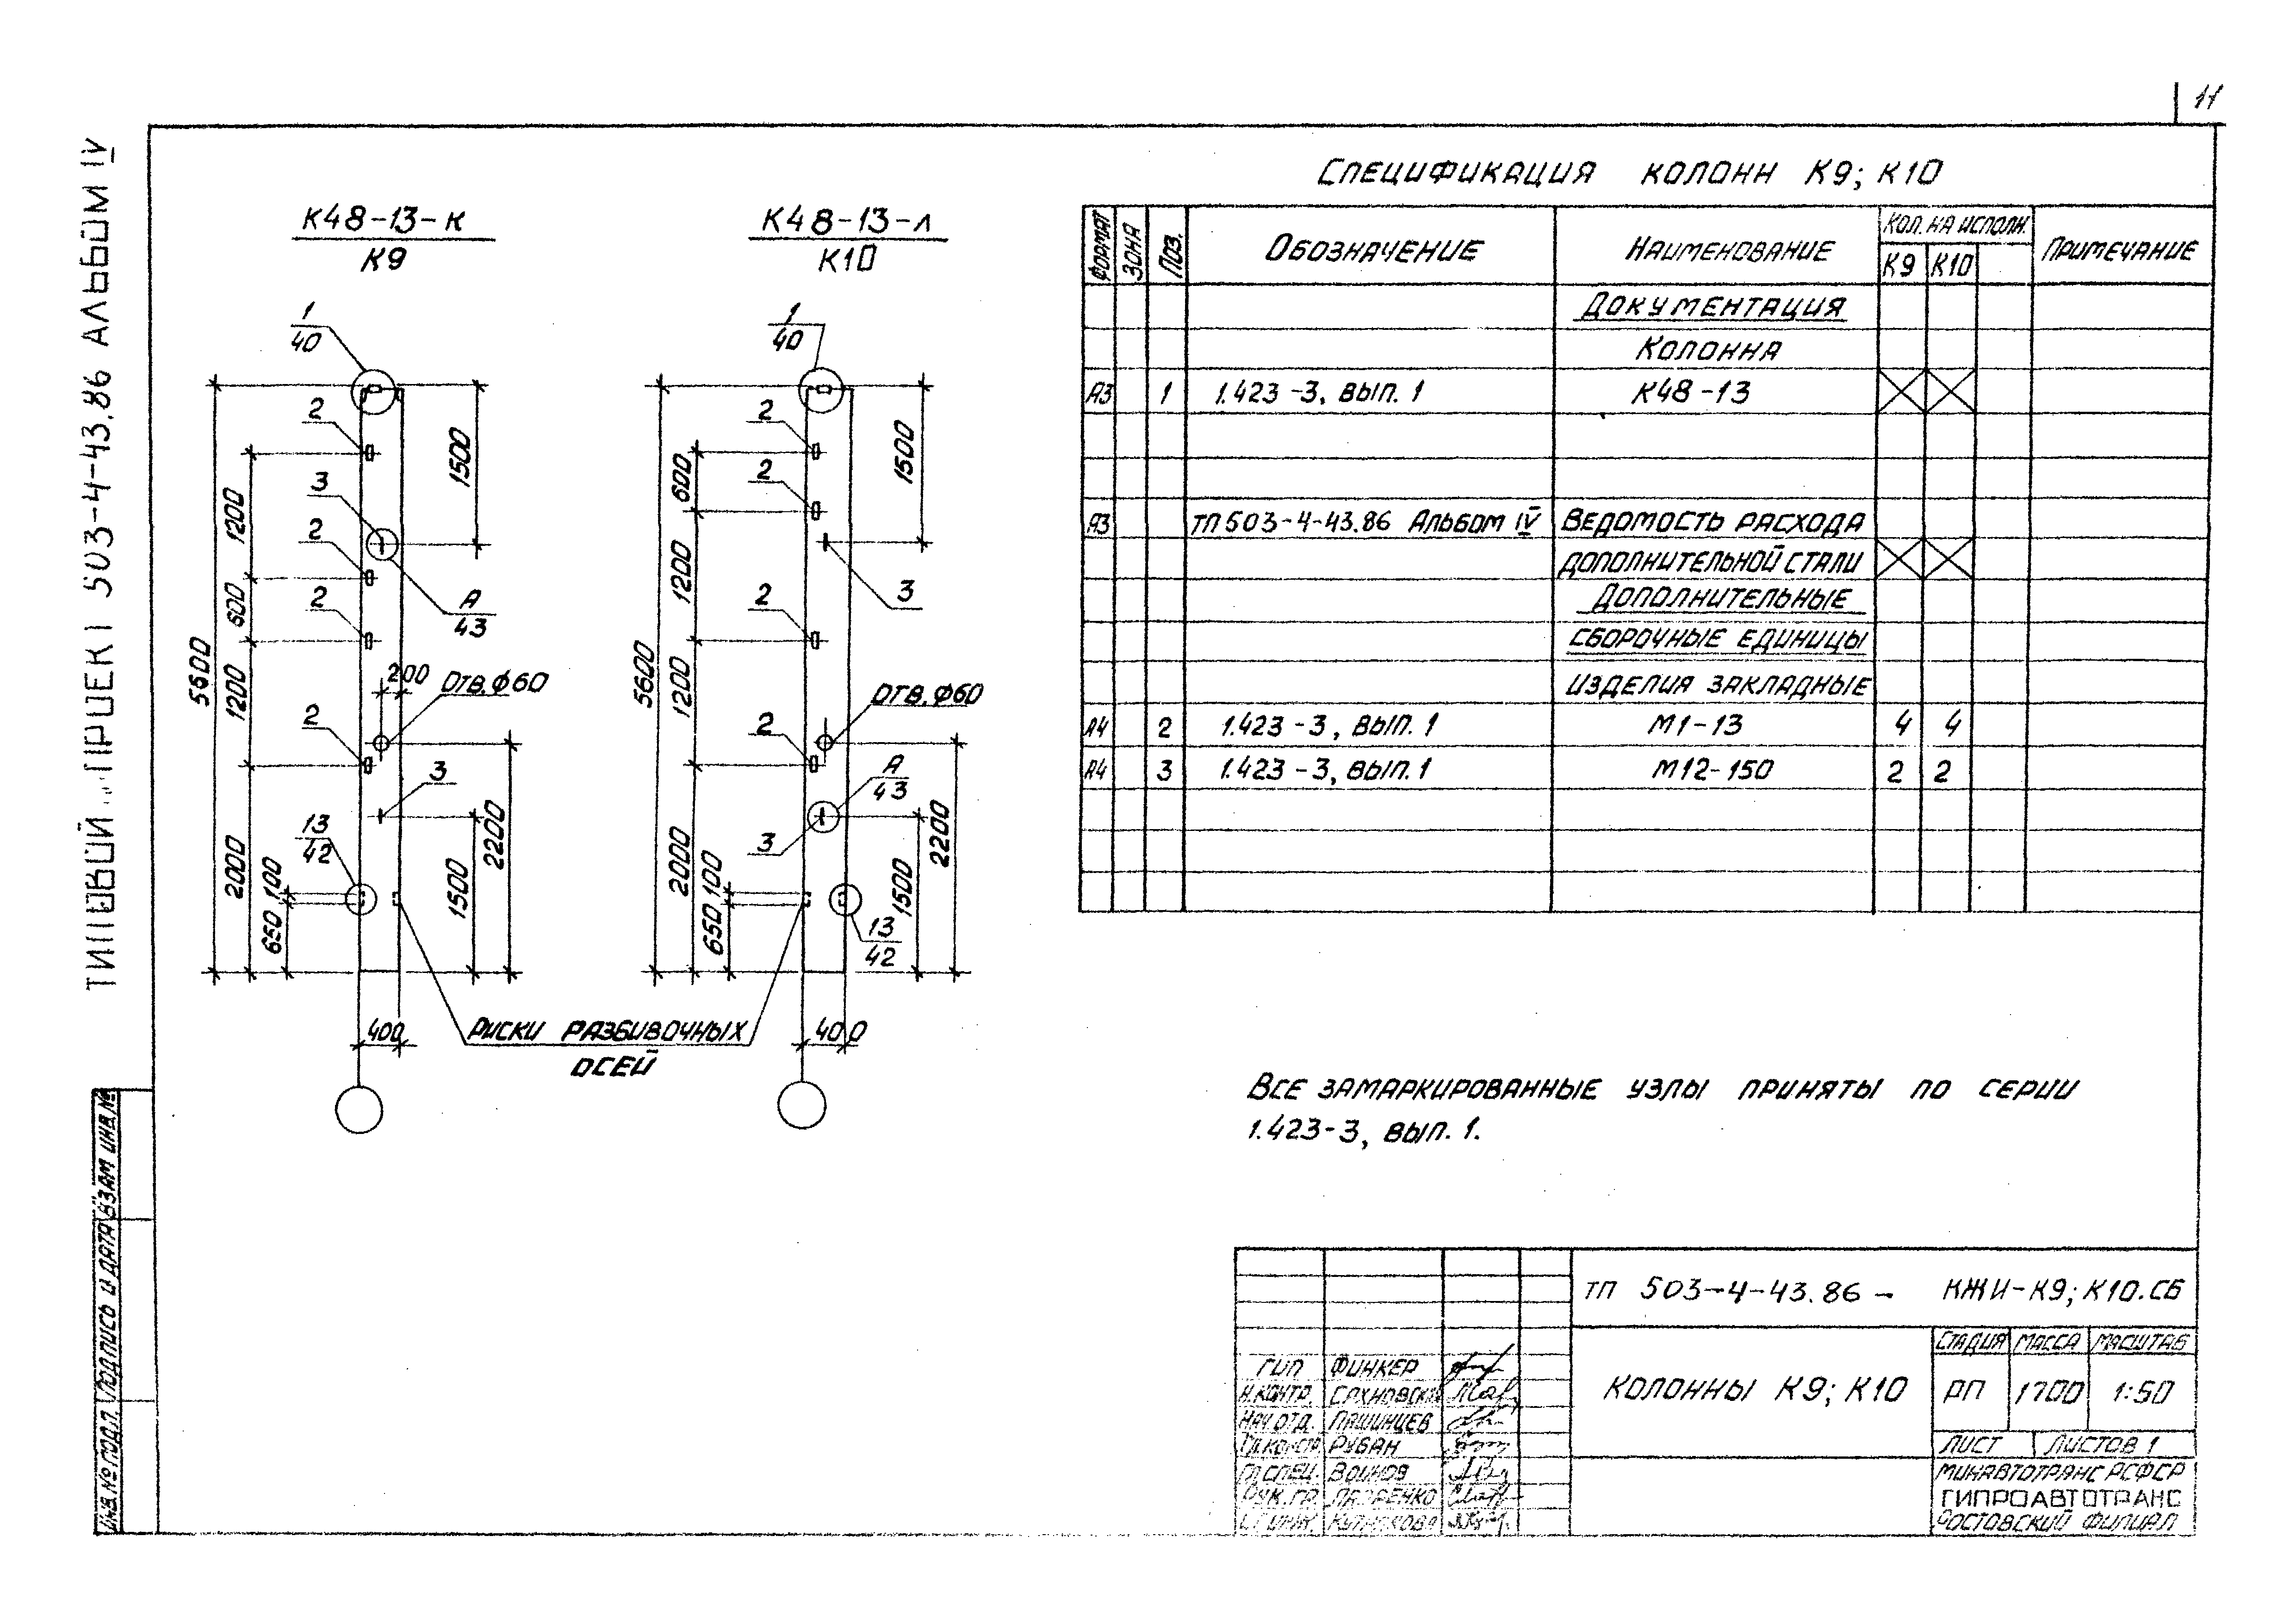 11
ТИПОВОЙ ПРОЕКТ 503-4-43.86 АЛЬБОМ IV
К48-13-к
К9
1
40
2
3
2
2
2
3
А
43
13
42
5600
1200
600
1200
2000
100
650
1500
200
Отв. Ф60
2200
1500
400
К48-13-л
К10
1
40
2
2
2
2
3
3
А
43
13
42
5600
600
1200
1200
2000
100
650
1500
Отв. Ф60
2200
1500
400
Риски разбивочных
осей
Спецификация колонн К9; К10
Формат Зона Поз. Обозначение Наименование Кол. на исполн. Примечание
К9 К10
Документация
Колонна
А3 1 1.423-3, вып. 1 К48-13
А3 ТП 503-4-43.86 Альбом IV Ведомость расхода
дополнительной стали
Дополнительные
сборочные единицы
изделия закладные
А4 2 1.423-3, вып. 1 М1-13 4 4
А4 3 1.423-3, вып. 1 М12-150 2 2
Все замаркированные узлы приняты по серии
1.423-3, вып. 1.
ТП 503-4-43.86 - КЖИ-К9; К10.СБ
Колонны К9; К10
Стадия Масса Масштаб
РП 1700 1:50
Лист Листов 1
Минавтотранс РСФСР
ГИПРОАВТОТРАНС
Ростовский филиал
ГИП Финкер
Н.контр.
Нач. отд. Пашинцев
Рубан
Гл. спец. Воинов
Рук. гр. Лазаренко
Ст. инж.
Инв. № подл. Подпись и дата Взам инв. №